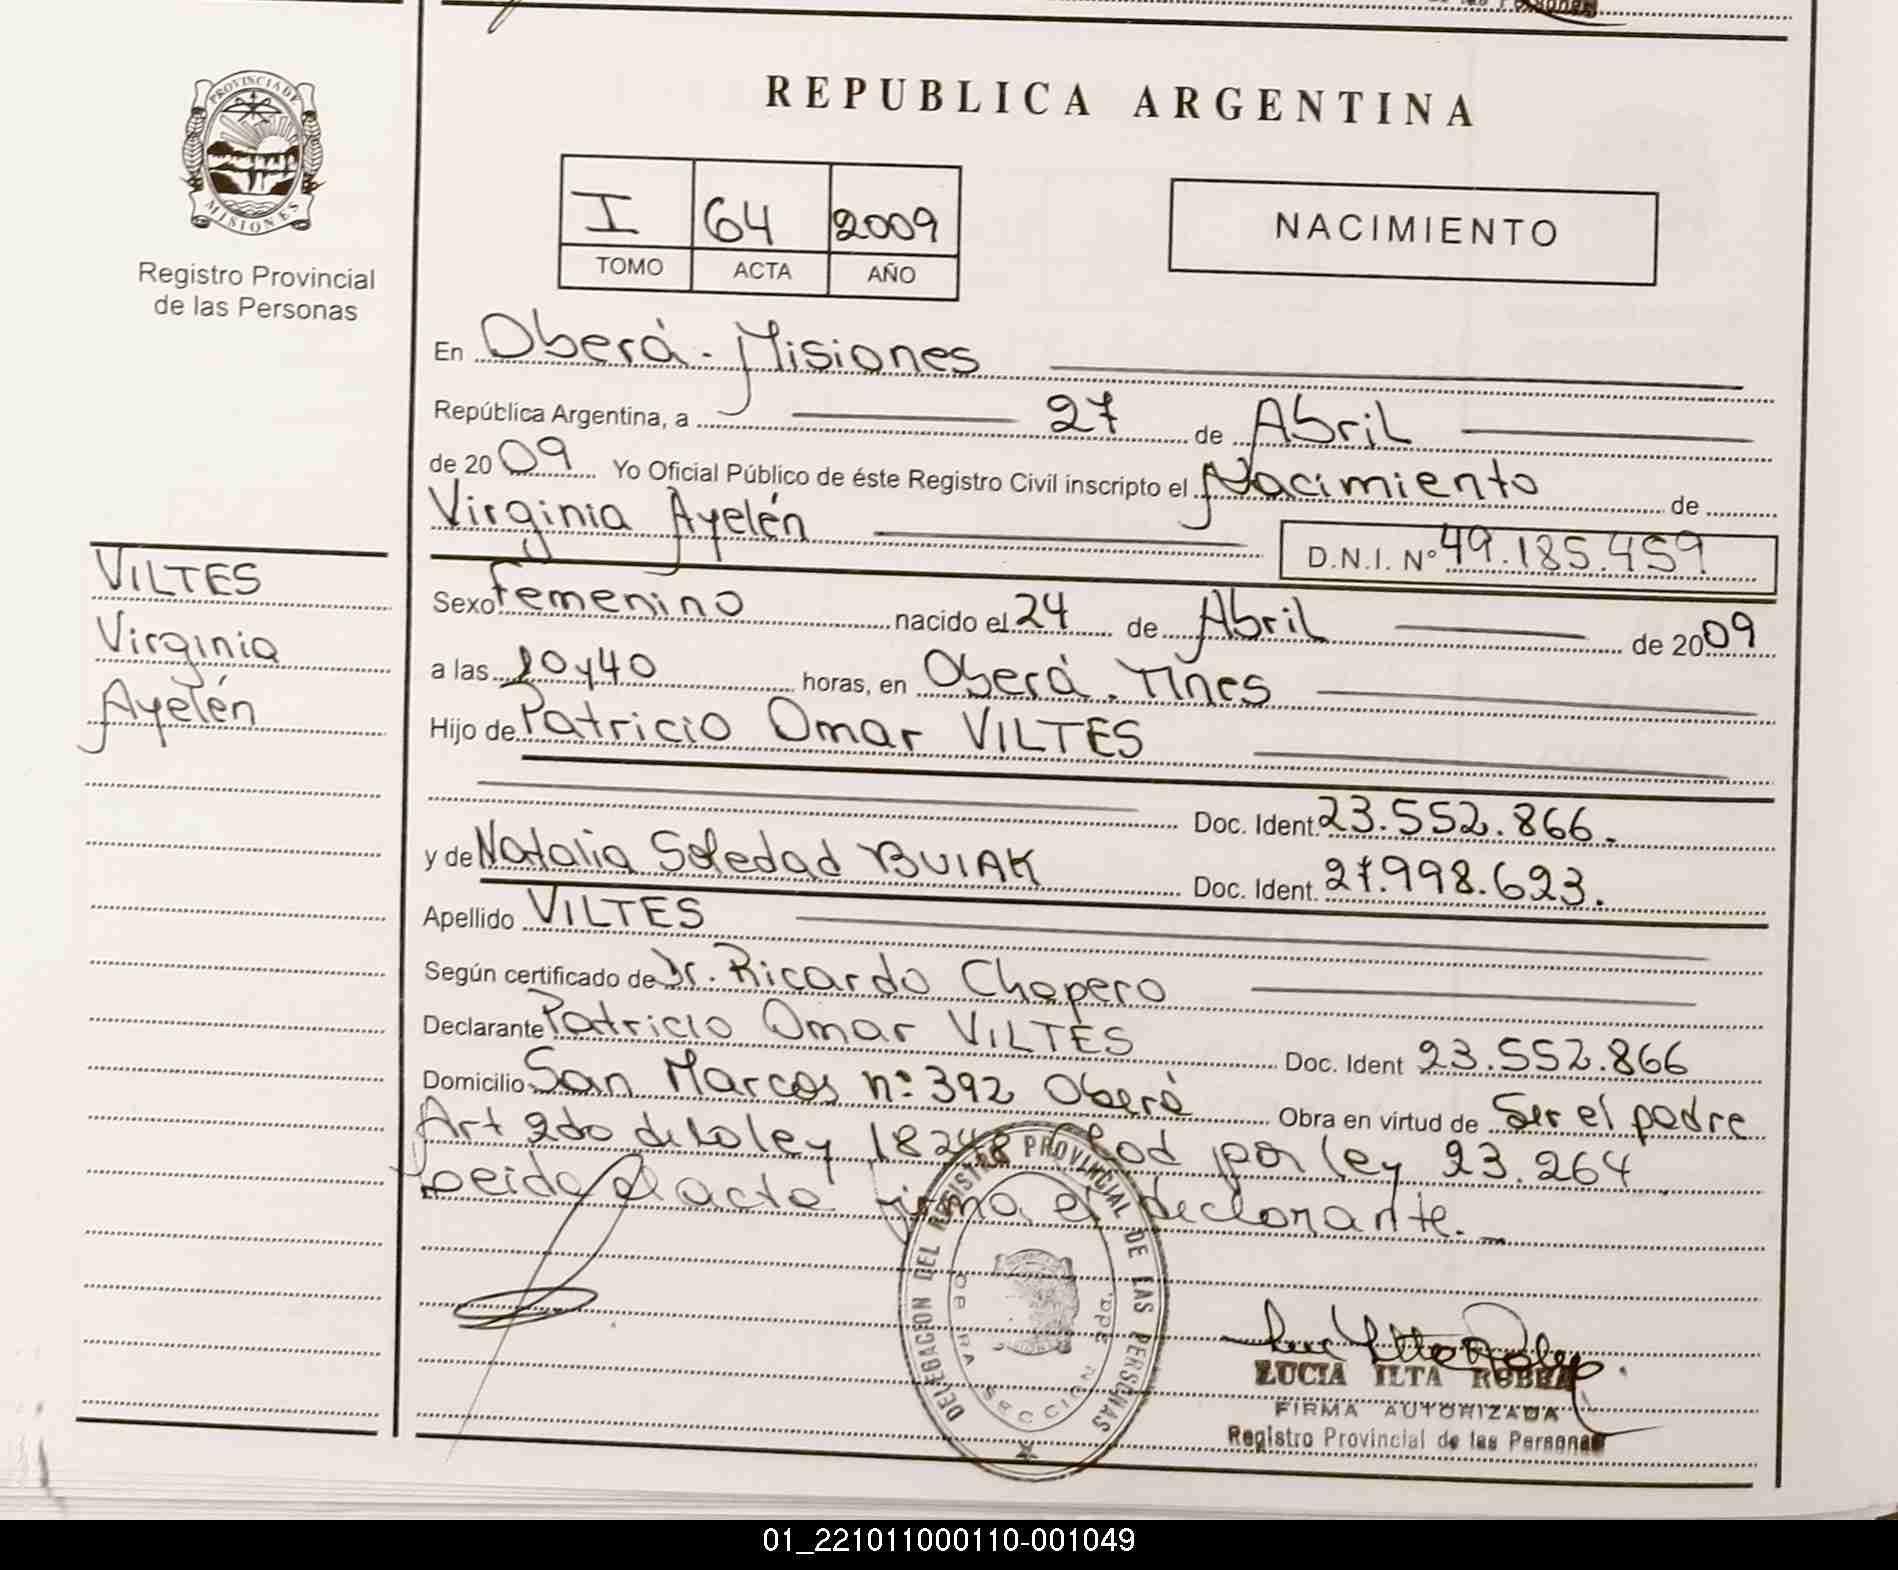 REPUBLICA ARGENTINA
PROVINCIA DE
MISIONES
Registro Provincial
de las Personas
I 64 2009
TOMO ACTA AÑO
NACIMIENTO
En Oberá - Misiones
República Argentina, a 27 de Abril
de 2009 Yo Oficial Público de éste Registro Civil inscripto el Nacimiento de
Virginia Ayelén D.N.I. Nº 49.185.459
VILTES
Virginia
Ayelén
Sexo femenino nacido el 24 de Abril de 2009
a las 20y40 horas, en Oberá. Mnes
Hijo de Patricio Omar VILTES
Doc. Ident. 23.552.866.
y de Natalia Soledad BUIAK Doc. Ident. 27.998.623.
Apellido VILTES
Según certificado de Dr. Ricardo Chapero
Declarante Patricio Omar VILTES Doc. Ident 23.552.866
Domicilio San Marcos nº 392 Oberá Obra en virtud de Ser el padre
Art 2do de la ley 18248 Mod por ley 23.264
Leida el acta firma el declarante.
DELEGACION DEL REGISTRO PROVINCIAL DE LAS PERSONAS
OBERA SECCION
LUCIA ILTA
FIRMA AUTORIZADA
Registro Provincial de las Personas
01_221011000110-001049